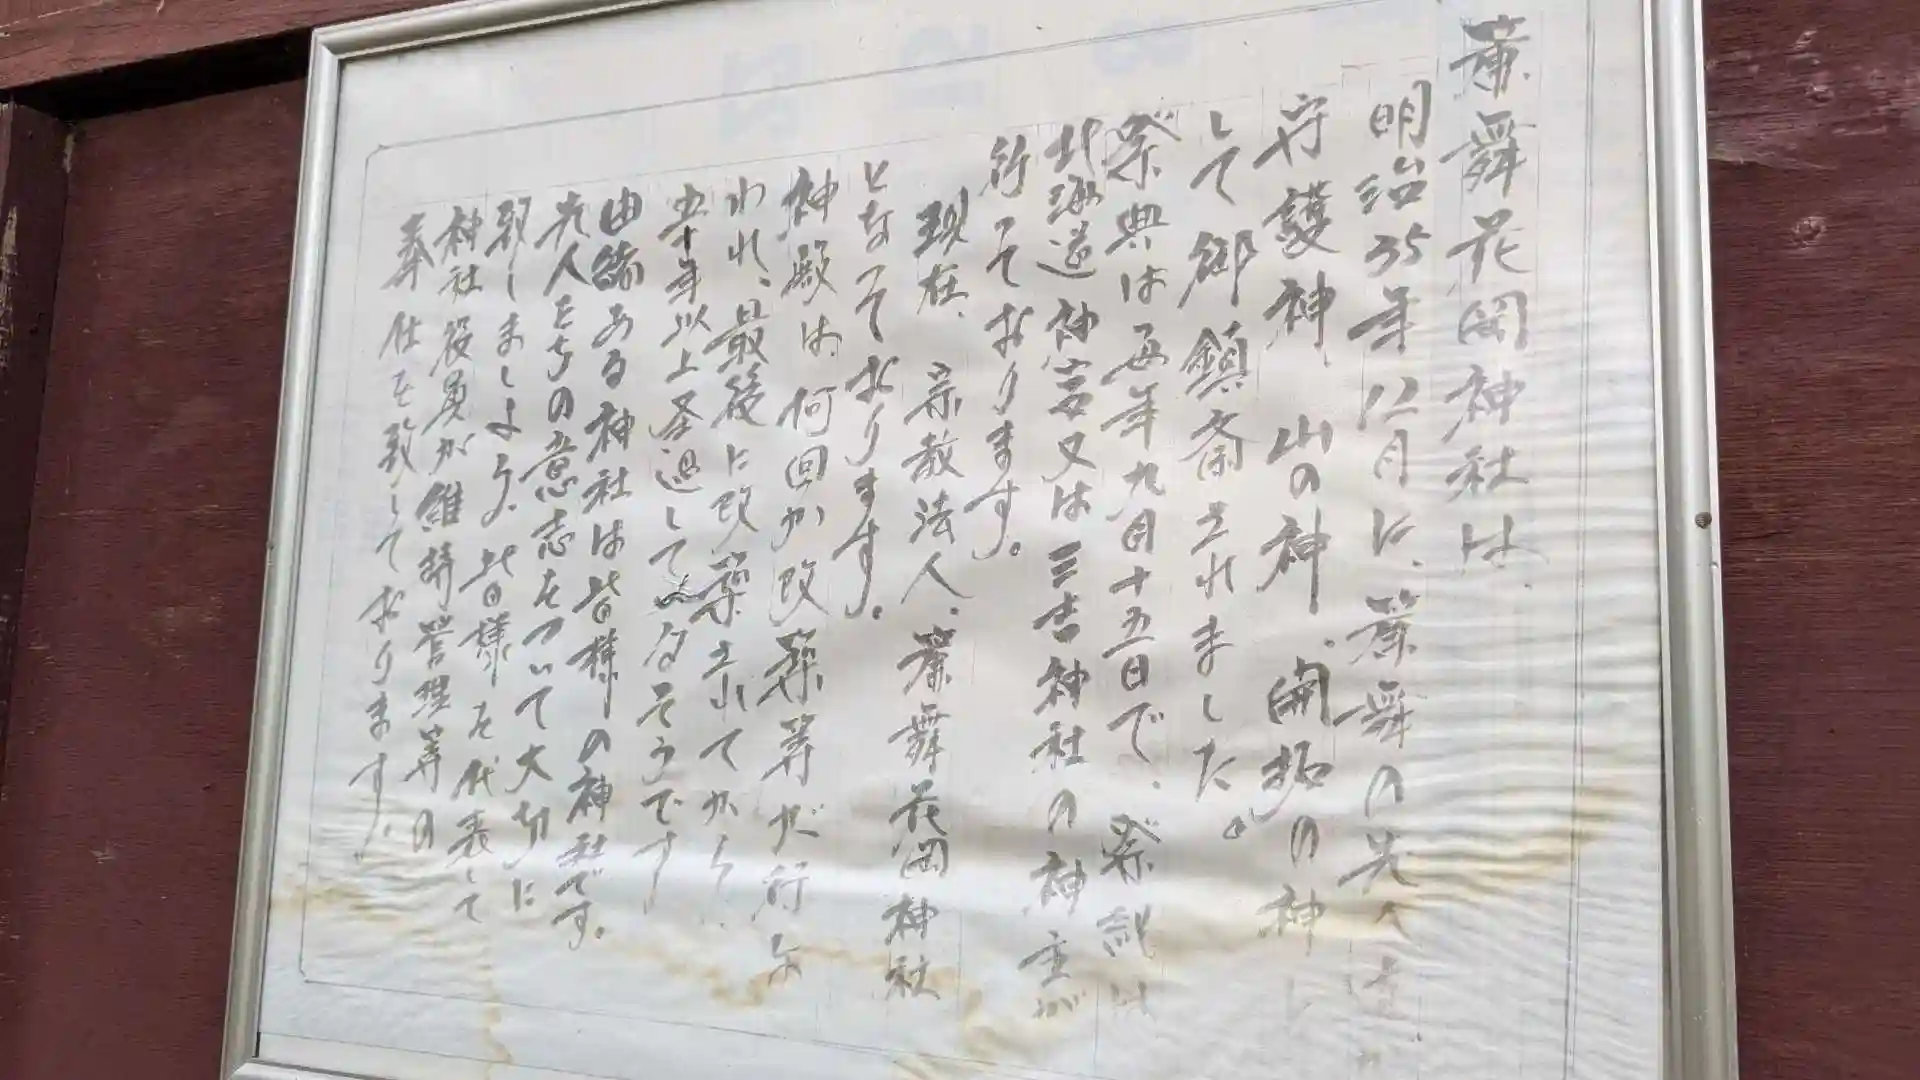 簾舞花岡神社は、
明治35年12月に、簾舞の先人達が
守護神、山の神、開拓の神と
して御鎮斎されました。
祭典は毎年九月十五日で、祭詞は
北海道神宮又は三吉神社の神主が
行っております。
現在、宗教法人、簾舞花岡神社
となっております。
神殿は、何回か改築等が行な
われ、最後に改築されてから、
五十年以上経過してゐるそうです
由緒ある神社は皆様の神社です。
先人たちの意志をついて大切に
致しましょう。皆様を代表して
神社役員が維持管理等の
奉仕を致しております。